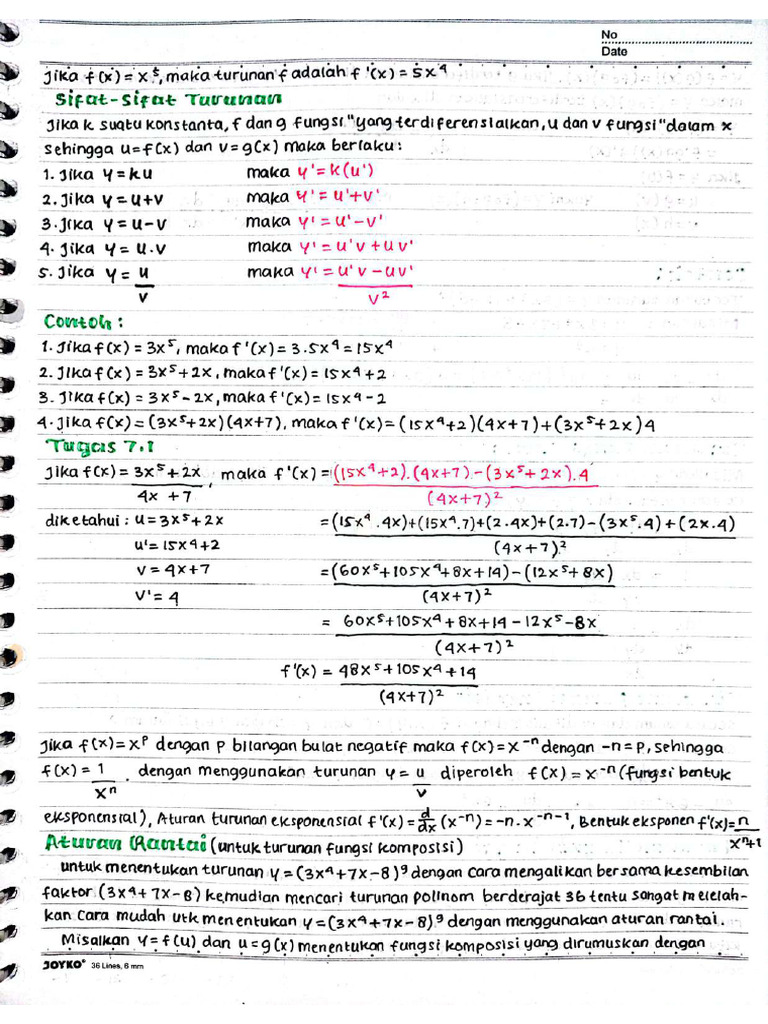 No
Date
Jika f(x) = x⁵, maka turunan f adalah f'(x) = 5x⁴
Sifat-Sifat Turunan
Jika k suatu konstanta, f dan g fungsi" yang terdiferensialkan, u dan v fungsi" dalam x
sehingga u=f(x) dan v=g(x) maka berlaku:
1. Jika y = ku maka y' = k(u')
2. Jika y = u+v maka y' = u'+v'
3. Jika y = u-v maka y' = u'-v'
4. Jika y = u.v maka y' = u'v + uv'
5. Jika y = u/v maka y' = u'v - uv' / v²
Contoh :
1. Jika f(x) = 3x⁵, maka f'(x) = 3.5x⁴ = 15x⁴
2. Jika f(x) = 3x⁵+2x, maka f'(x) = 15x⁴+2
3. Jika f(x) = 3x⁵-2x, maka f'(x) = 15x⁴-2
4. Jika f(x) = (3x⁵+2x)(4x+7), maka f'(x) = (15x⁴+2)(4x+7)+(3x⁵+2x)4
Tugas 7.1
Jika f(x) = 3x⁵+2x / 4x+7, maka f'(x) = (15x⁴+2).(4x+7)-(3x⁵+2x).4 / (4x+7)²
diketahui : u = 3x⁵+2x = (15x⁴.4x)+(15x⁴.7)+(2.4x)+(2.7)-(3x⁵.4)+(2x.4) / (4x+7)²
u' = 15x⁴+2
v = 4x+7 = (60x⁵+105x⁴+8x+14)-(12x⁵+8x) / (4x+7)²
v' = 4
= 60x⁵+105x⁴+8x+14-12x⁵-8x / (4x+7)²
f'(x) = 48x⁵+105x⁴+14 / (4x+7)²
Jika f(x)=xᵖ dengan p bilangan bulat negatif maka f(x)=x⁻ⁿ dengan -n=p, sehingga
f(x) = 1/xⁿ. dengan menggunakan turunan y = u/v diperoleh f(x) = x⁻ⁿ (fungsi bentuk
eksponensial), Aturan turunan eksponensial f'(x) = d/dx (x⁻ⁿ) = -n.x⁻ⁿ⁻¹, Bentuk eksponen f'(x)= n/xⁿ⁺¹
Aturan Rantai (untuk turunan fungsi komposisi)
untuk menentukan turunan y = (3x⁴+7x-8)⁹ dengan cara mengalikan bersama kesembilan
faktor (3x⁴+7x-8) kemudian mencari turunan polinom berderajat 36 tentu sangat melelah-
kan cara mudah utk menentukan y=(3x⁴+7x-8)⁹ dengan menggunakan aturan rantai.
Misalkan y=f(u) dan u=g(x) menentukan fungsi komposisi yang dirumuskan dengan
JOYKO® 36 Lines, 6 mm